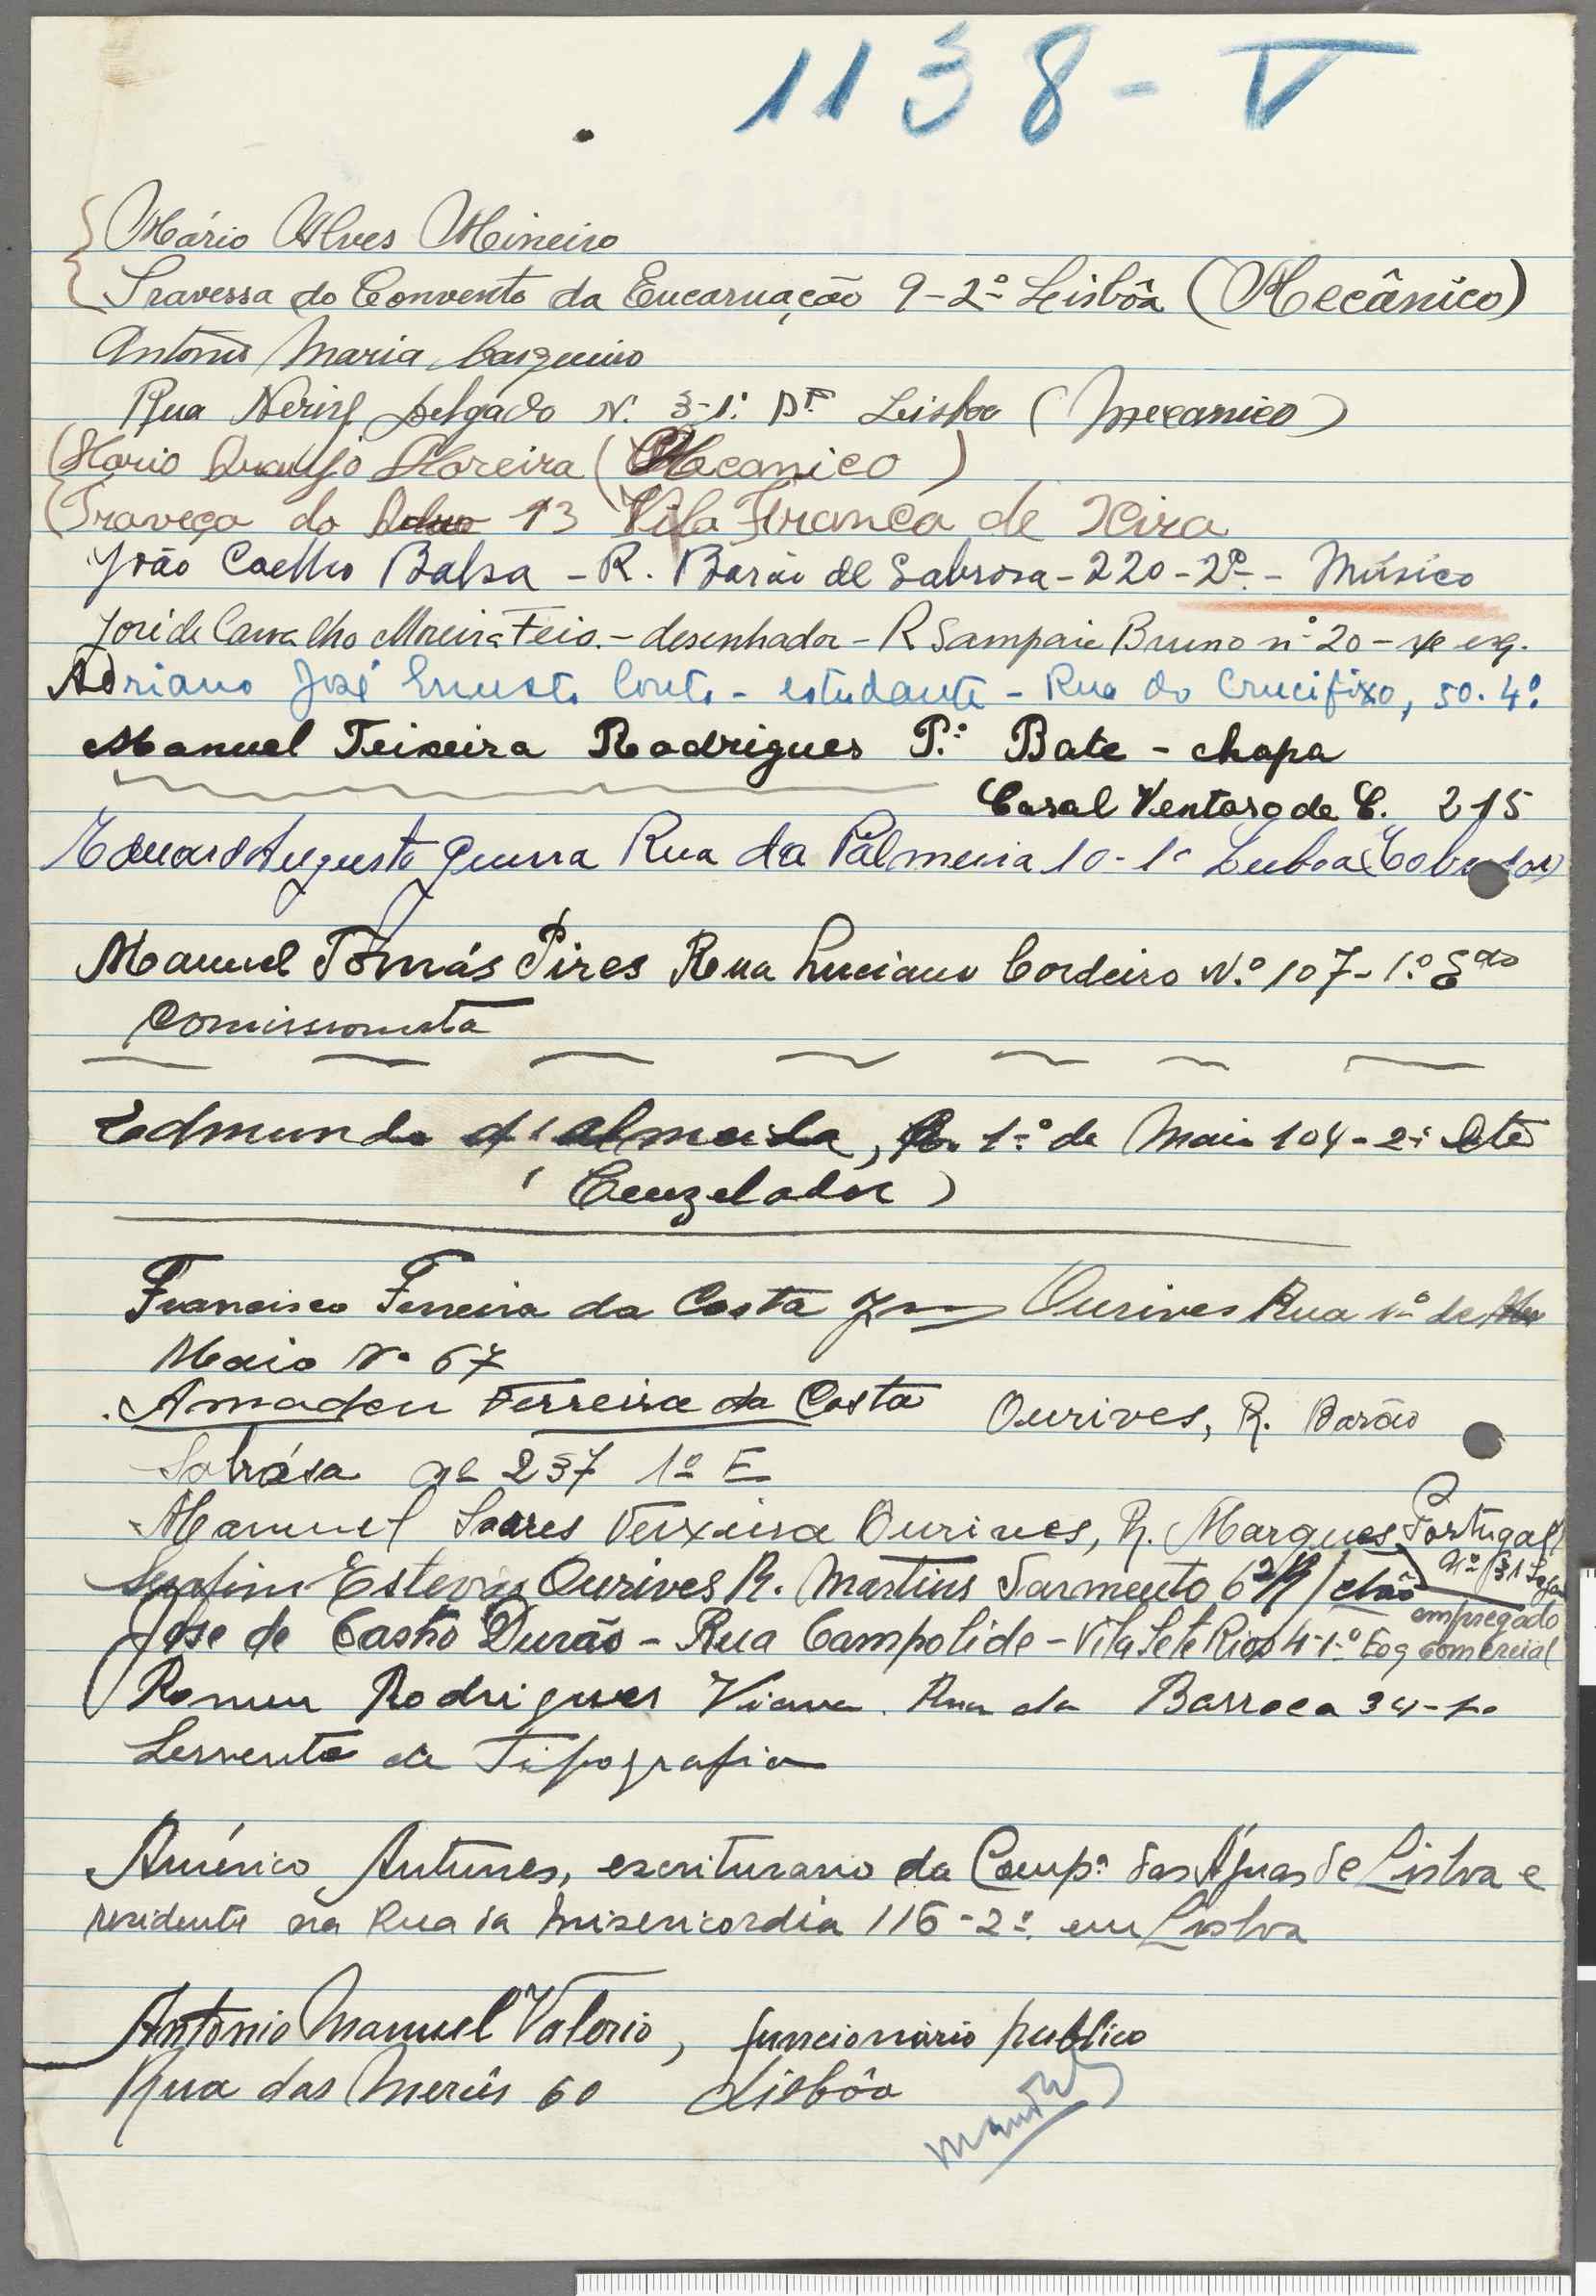 1138 - V
Mário Alves Mineiro
Travessa do Convento da Encarnação 9-2º Lisbôa (Mecânico)
António Maria Casqueiro
Rua Nery Delgado N. 3-1º Dtº Lisboa (Mecanico)
Mario Araujo Moreira (Mecanico)
Traveça do 13 Vila Franca de Xira
João Coelho Balsa - R. Barão de Sabrosa - 220-2º - Músico
José de Carvalho Moreira Feio - desenhador - R Sampaio Bruno nº 20 - esq.
Adriano José Ernesto Couto - estudante - Rua do Crucifixo, 50. 4º
Manuel Teixeira Rodrigues P.º Bate - chapa
Casal Ventoso de C. 215
Eduardo Augusto Guerra Rua da Palmeira 10-1º Lisboa (Cobrador)
Manuel Tomás Pires Rua Luciano Cordeiro N.º 107-1.º Edo
Comissionista
Edmundo d'Almeida, R. 1º de Maio 104-2º Dtº
(Cinzelador)
Francisco Ferreira da Costa Ourives Rua 1º de
Maio Nº 67
Amadeu Ferreira da Costa Ourives, R. Barão
Sabrósa nº 237 1º E
Manuel Soares Teixeira Ourives, R. Marques Portugal
nº
Serafim Esteves Ourives R. Martins Sarmento 62 R/chão
José de Castro Durão - Rua Campolide - Vila Sete Rios 4-1º Esq empregado comercial
Romeu Rodrigues Viana. Rua da Barroca 34-1º
Servente de Tipografia
Américo Antunes, escriturario da Comp.ª das Águas de Lisboa e
residente na Rua da Misericordia 116-2º em Lisboa
Antonio Manuel Valerio, funcionário publico
Rua das Mercês 60 Lisbôa